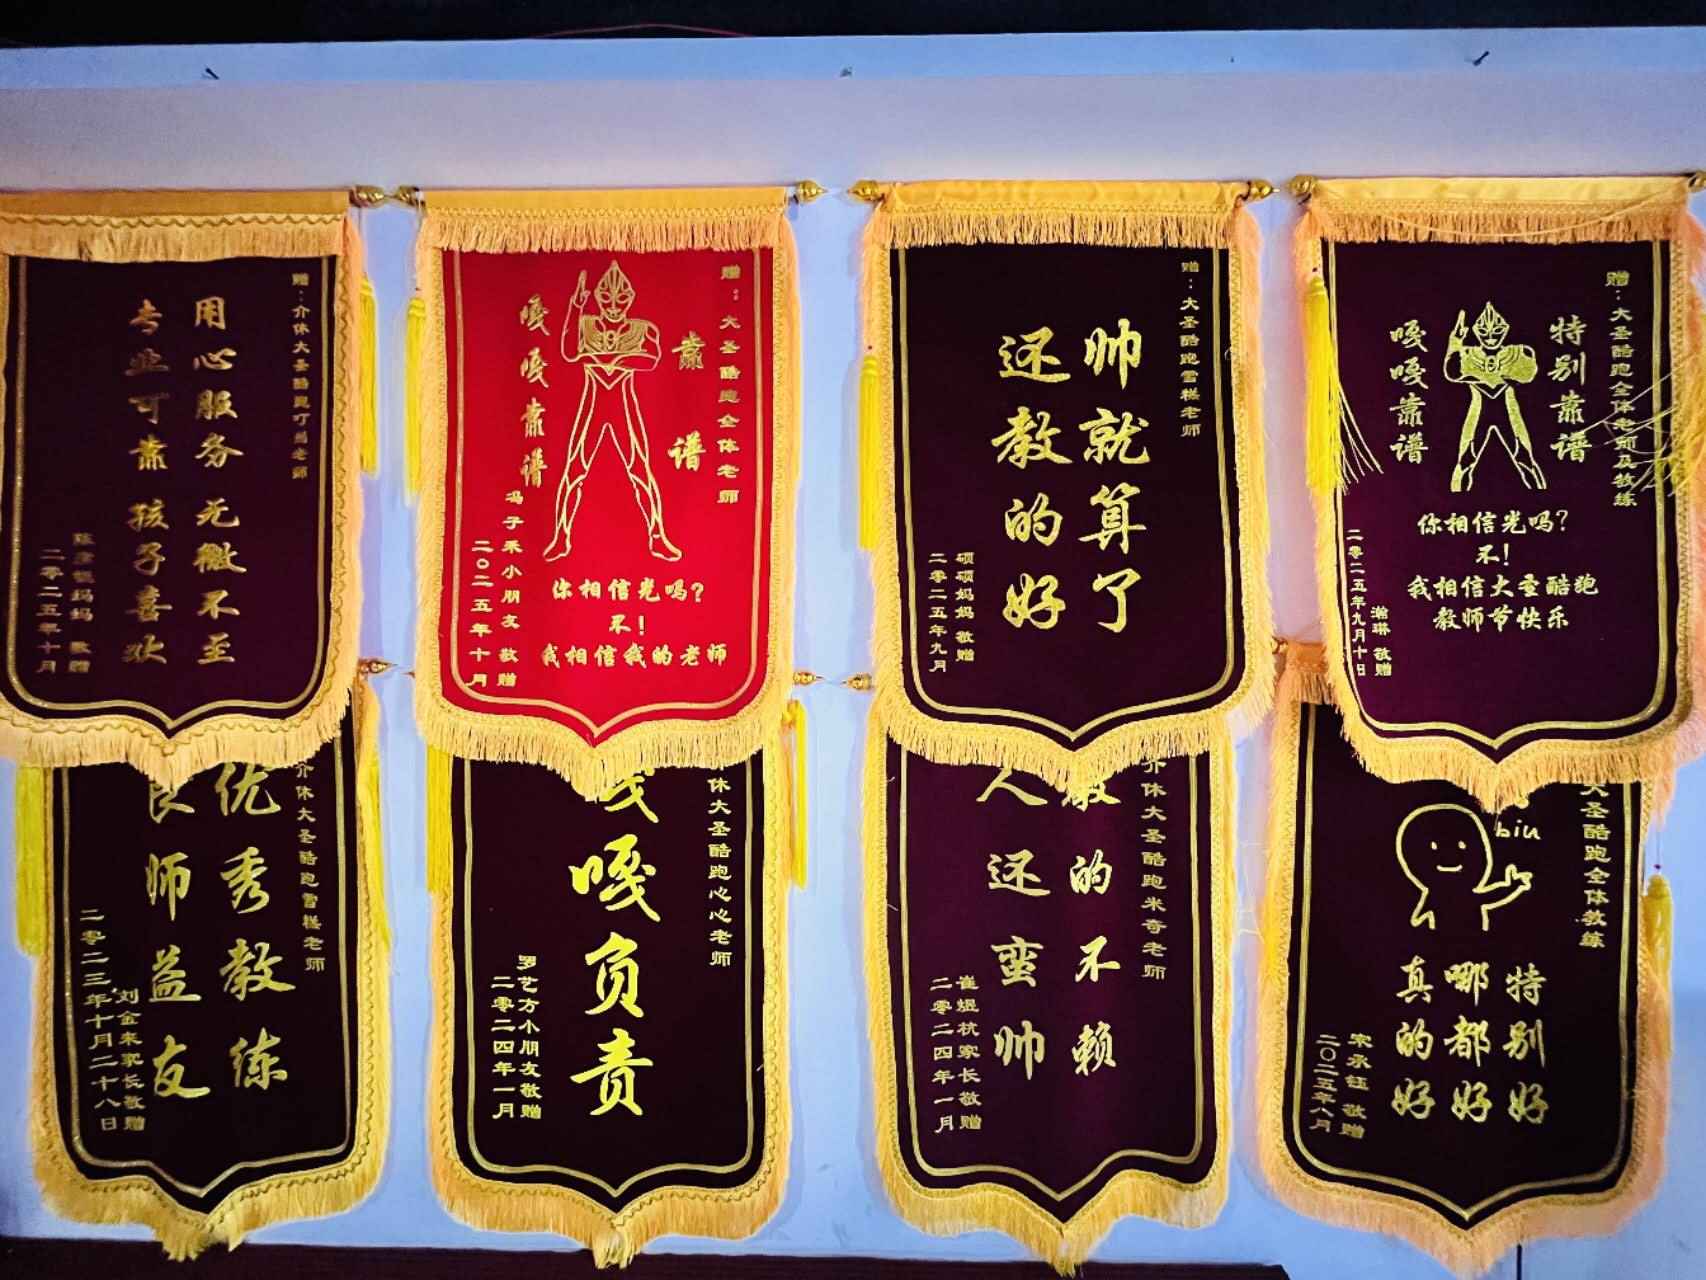 赠：介休大圣酷跑叮当老师
用心服务 无微不至
专业可靠 孩子喜欢
妈妈 敬赠
二零二五年十月
赠：大圣酷跑全体老师
靠谱
嘎嘎靠谱
你相信光吗？
不！
我相信我的老师
冯子禾小朋友 敬赠
二〇二五年十月
赠：大圣酷跑雪糕老师
帅就算了
还教的好
硕硕妈妈 敬赠
二零二五年九月
赠：大圣酷跑全体老师及教练
特别靠谱
嘎嘎靠谱
你相信光吗？
不！
我相信大圣酷跑
教师节快乐
瀚琳 敬赠
二零二五年九月十日
介休大圣酷跑雪糕老师
优秀教练
良师益友
刘金来家长敬赠
二零二三年十月二十八日
休大圣酷跑心心老师
嘎嘎负责
罗艺方小朋友敬赠
二零二四年一月
介休大圣酷跑米奇老师
教的不赖
人还蛮帅
崔煜杭家长敬赠
二零二四年一月
大圣酷跑全体教练
biu
特别好
哪都好
真的好
宋承钰 敬赠
二〇二五年八月